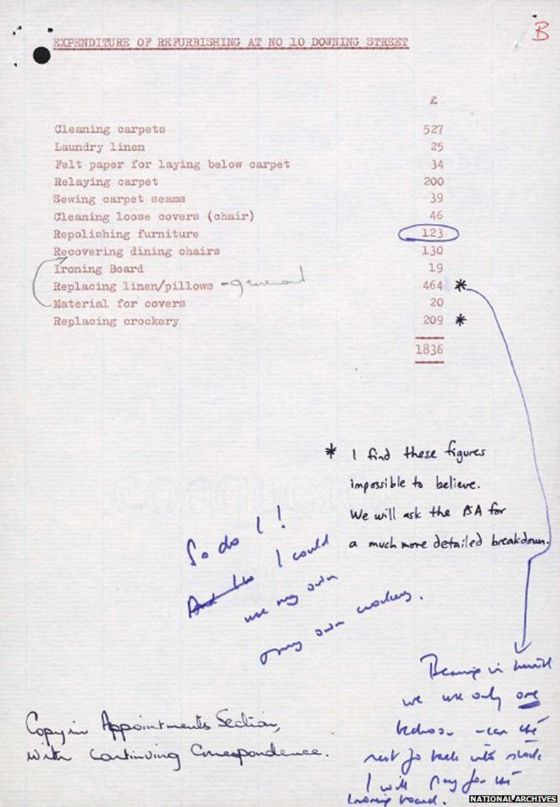 B
EXPENDITURE OF REFURBISHING AT NO 10 DOWNING STREET
£
Cleaning carpets 527
Laundry linen 25
Felt paper for laying below carpet 34
Relaying carpet 200
Sewing carpet seams 39
Cleaning loose covers (chair) 46
Repolishing furniture 123
Recovering dining chairs 130
Ironing Board 19
Replacing linen/pillows - general 464 *
Material for covers 20
Replacing crockery 209 *
1836
* I find these figures
impossible to believe.
We will ask the PSA for
a much more detailed breakdown.
So do I!
I could
use my own
my own crockery.
Bearing in mind
we use only one
bedroom - can the
rest go back into stock
I will pay for the
ironing board.
Copy in Appointments Section,
with Continuing Correspondence.
NATIONAL ARCHIVES